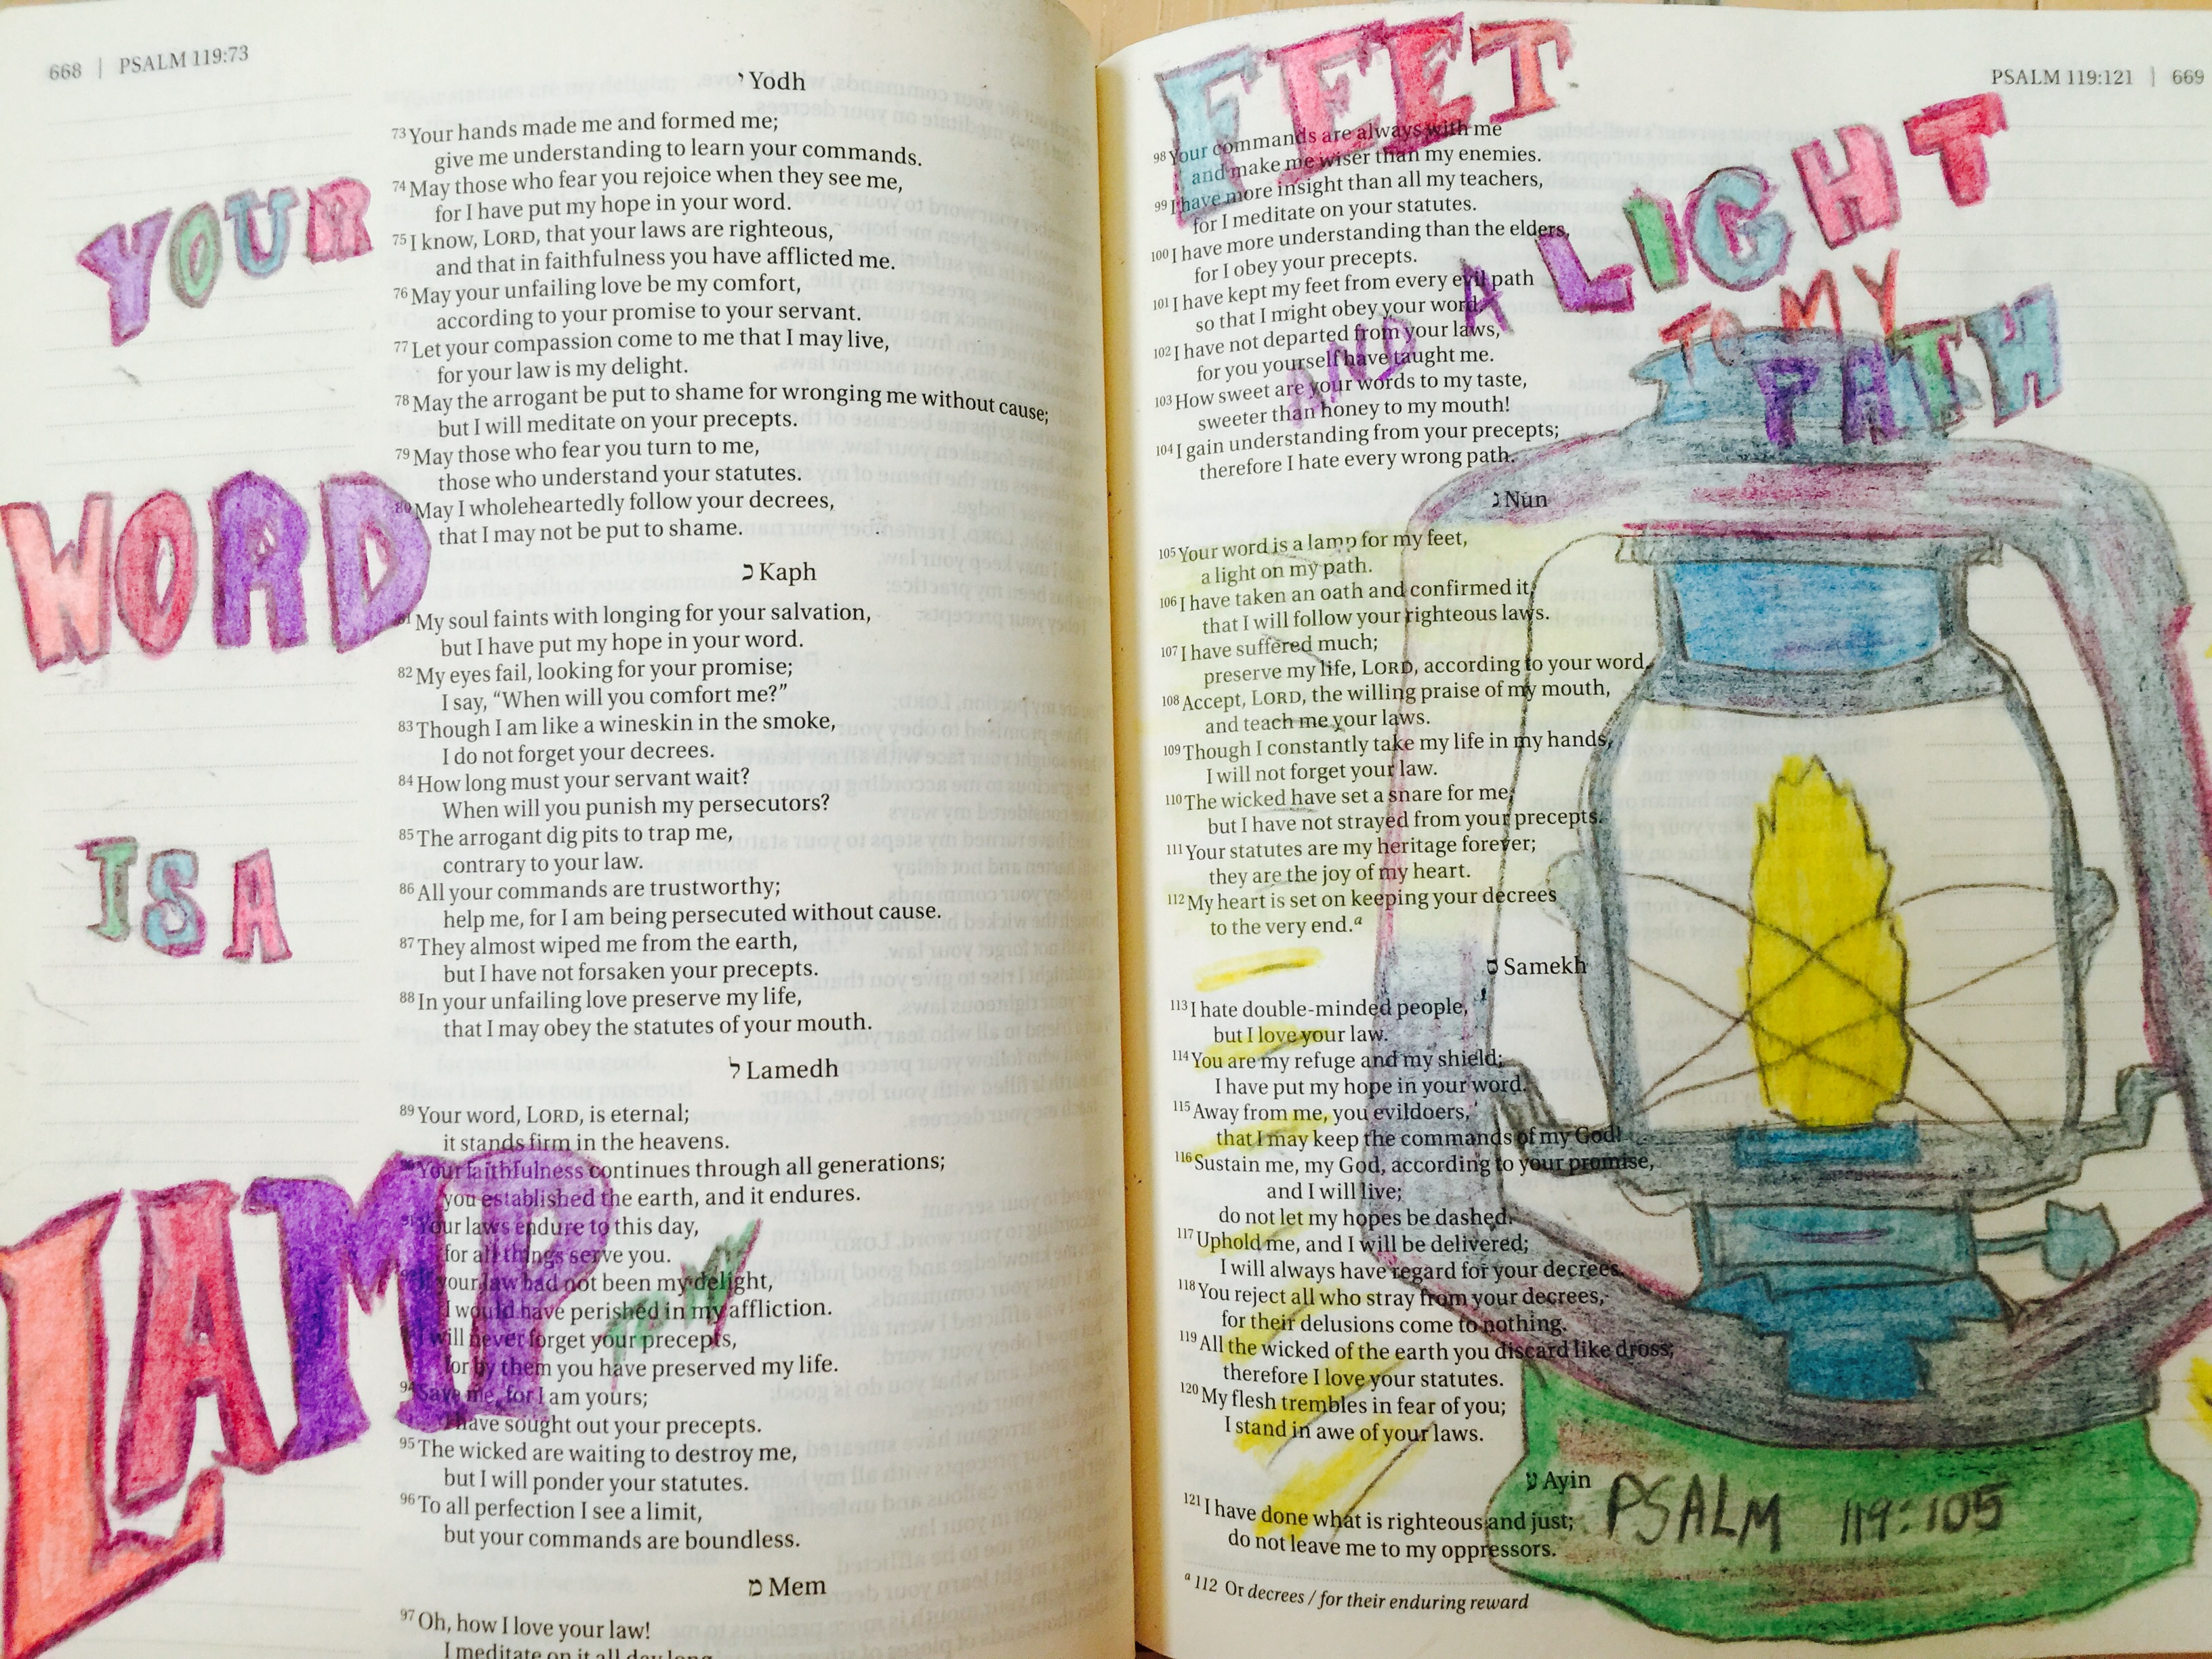 668 | PSALM 119:73
י Yodh
73 Your hands made me and formed me;
give me understanding to learn your commands.
74 May those who fear you rejoice when they see me,
for I have put my hope in your word.
75 I know, LORD, that your laws are righteous,
and that in faithfulness you have afflicted me.
76 May your unfailing love be my comfort,
according to your promise to your servant.
77 Let your compassion come to me that I may live,
for your law is my delight.
78 May the arrogant be put to shame for wronging me without cause;
but I will meditate on your precepts.
79 May those who fear you turn to me,
those who understand your statutes.
80 May I wholeheartedly follow your decrees,
that I may not be put to shame.
כ Kaph
81 My soul faints with longing for your salvation,
but I have put my hope in your word.
82 My eyes fail, looking for your promise;
I say, “When will you comfort me?”
83 Though I am like a wineskin in the smoke,
I do not forget your decrees.
84 How long must your servant wait?
When will you punish my persecutors?
85 The arrogant dig pits to trap me,
contrary to your law.
86 All your commands are trustworthy;
help me, for I am being persecuted without cause.
87 They almost wiped me from the earth,
but I have not forsaken your precepts.
88 In your unfailing love preserve my life,
that I may obey the statutes of your mouth.
ל Lamedh
89 Your word, LORD, is eternal;
it stands firm in the heavens.
90 Your faithfulness continues through all generations;
you established the earth, and it endures.
91 Your laws endure to this day,
for all things serve you.
92 If your law had not been my delight,
I would have perished in my affliction.
93 I will never forget your precepts,
for by them you have preserved my life.
94 Save me, for I am yours;
I have sought out your precepts.
95 The wicked are waiting to destroy me,
but I will ponder your statutes.
96 To all perfection I see a limit,
but your commands are boundless.
מ Mem
97 Oh, how I love your law!
I meditate on it all day long.
YOUR
WORD
IS A
LAMP
MY
FEET
AND A LIGHT
TO MY
PATH
PSALM 119:121 | 669
98 Your commands are always with me
and make me wiser than my enemies.
99 I have more insight than all my teachers,
for I meditate on your statutes.
100 I have more understanding than the elders,
for I obey your precepts.
101 I have kept my feet from every evil path
so that I might obey your word.
102 I have not departed from your laws,
for you yourself have taught me.
103 How sweet are your words to my taste,
sweeter than honey to my mouth!
104 I gain understanding from your precepts;
therefore I hate every wrong path.
נ Nun
105 Your word is a lamp for my feet,
a light on my path.
106 I have taken an oath and confirmed it,
that I will follow your righteous laws.
107 I have suffered much;
preserve my life, LORD, according to your word.
108 Accept, LORD, the willing praise of my mouth,
and teach me your laws.
109 Though I constantly take my life in my hands,
I will not forget your law.
110 The wicked have set a snare for me,
but I have not strayed from your precepts.
111 Your statutes are my heritage forever;
they are the joy of my heart.
112 My heart is set on keeping your decrees
to the very end.a
ס Samekh
113 I hate double-minded people,
but I love your law.
114 You are my refuge and my shield;
I have put my hope in your word.
115 Away from me, you evildoers,
that I may keep the commands of my God!
116 Sustain me, my God, according to your promise,
and I will live;
do not let my hopes be dashed.
117 Uphold me, and I will be delivered;
I will always have regard for your decrees.
118 You reject all who stray from your decrees,
for their delusions come to nothing.
119 All the wicked of the earth you discard like dross;
therefore I love your statutes.
120 My flesh trembles in fear of you;
I stand in awe of your laws.
ע Ayin
121 I have done what is righteous and just;
do not leave me to my oppressors.
a 112 Or decrees / for their enduring reward
PSALM 119:105